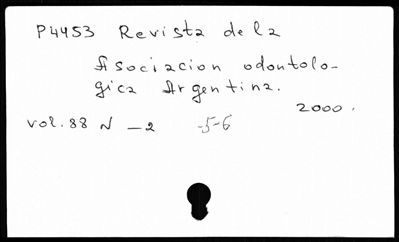 P4453 Revista de la
Asociacion odontolo-
gica Argentina.
2000.
vol. 88 N - 2 -5-6